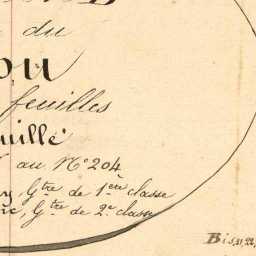 du
ou
feuilles
uille
au N° 204
y, Gtre de 1ère classe
, Gtre de 2e class
Bis, 21, 22,